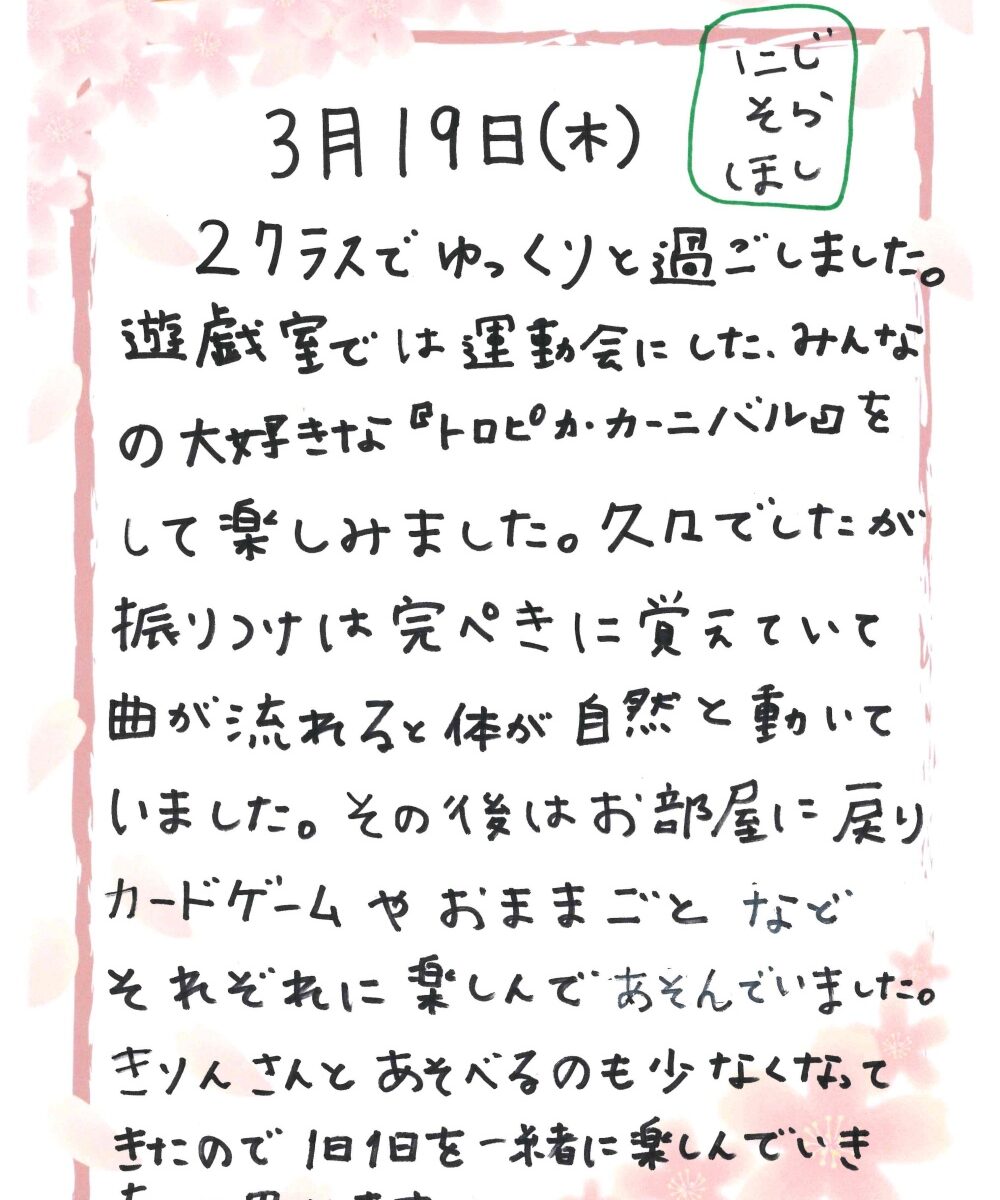 にじ
そら
ほし
3月19日(木)
2クラスでゆっくりと過ごしました。
遊戯室では運動会にした、みんな
の大好きな『トロピカ・カーニバル』を
して楽しみました。久々でしたが
振りつけは完ぺきに覚えていて
曲が流れると体が自然と動いて
いました。その後はお部屋に戻り
カードゲームやおままごとなど
それぞれに楽しんであそんでいました。
きりんさんとあそべるのも少なくなって
きたので1日1日を一緒に楽しんでいき